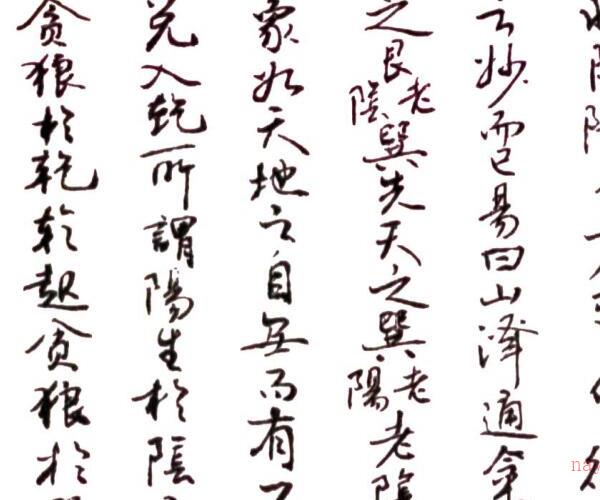 之妙而已易曰山澤通氣
之艮老陰巽先天之巽老陽老陰
象如天地之自無而有
兌入乾所謂陽生於陰
貪狼於乾乾起貪狼於